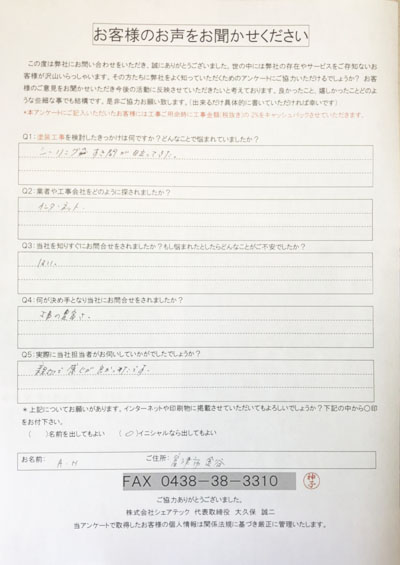 お客様のお声をお聞かせください
この度は弊社にお問い合わせをいただき、誠にありがとうございました。世の中には弊社の存在やサービスをご存知ないお
客様が沢山いらっしゃいます。その方たちに弊社をよく知っていただくためのアンケートにご協力いただけるでしょうか？ お客
様のご意見をお聞かせいただき今後の活動に反映させていただきたいと考えております。良かったこと、嬉しかったことどのよ
うな些細な事でも結構です。是非ご協力お願い致します。（出来るだけ具体的に書いていただければ幸いです）
*本アンケートにご記入いただいたお客様には工事ご用命時に工事金額(税抜き)の 2%をキャッシュバックさせていただきます。
Q1：塗装工事を検討したきっかけは何ですか？どんなことで悩まれていましたか？
シーリング すき間が目立ってきた。
Q2：業者や工事会社をどのように探されましたか？
インターネット
Q3：当社を知りすぐにお問合せをされましたか？もし悩まれたとしたらどんなことがご不安でしたか？
はい、
Q4：何が決め手となり当社にお問合せをされましたか？
Q5：実際に当社担当者がお伺いしていかがでしたでしょうか？
*上記についてお願いがあります。インターネットや印刷物に掲載させていただいてもよろしいでしょうか？下記の中から〇印
をお付下さい。
（　）名前を出してもよい　（〇）イニシャルなら出してもよい
お名前： A・H ご住所：
FAX 0438-38-3310
ご協力ありがとうございました。
株式会社シェアテック 代表取締役 大久保 誠二
当アンケートで取得したお客様の個人情報は関係法規に基づき厳正に管理いたします。